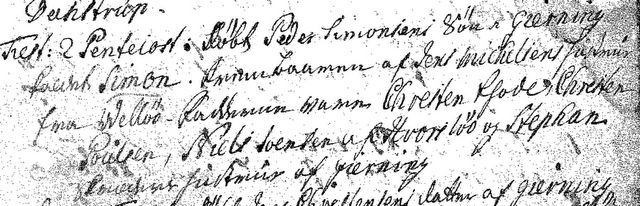 Dahlstrup.
Fest: 2 Pentecost: Døbt Peder Simonsens Søn i gierning
kaldet Simon. frembaaren af Jens Michelsens hustrue
fra Velløv. Fadderne vare Chresten Fjode, Chresten
Poulsen, Niels Svendsen af Hvorsløv og Stephan
hustrue af gierning
Chrestensens datter af gierning